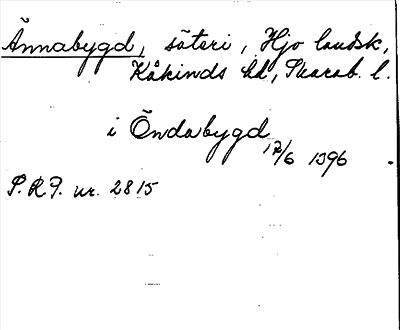 Ännabygd, säteri, Hjo landsk,
Kåkinds hd, Skarab. l.
i Öndabygd 17/6 1396
S.R.P. nr. 2815